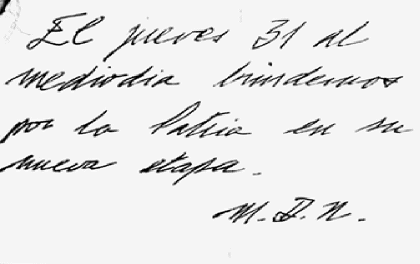 El jueves 31 al
mediodia brindemos
por la Patria en su
nueva etapa.
M.D.N.